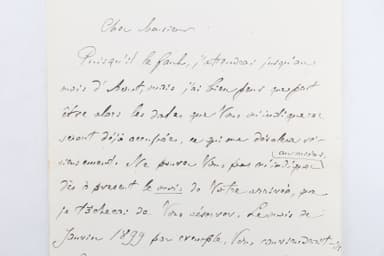 Cher Monsieur
Puisqu'il le faut, j'attendrai jusqu'au
mois d'Aout, mais j'ai bien peur que peut
être alors les dates que Vous m'indiquerez
seront déjà occupées, ce qui me désolera
Ne pouvez Vous pas m'indiquer
au moins,
dès à présent le mois de Votre arrivée, que
je tâcherai de Vous réserver. Le mois de
Janvier 1899 par exemple, Vous conviendrait-il